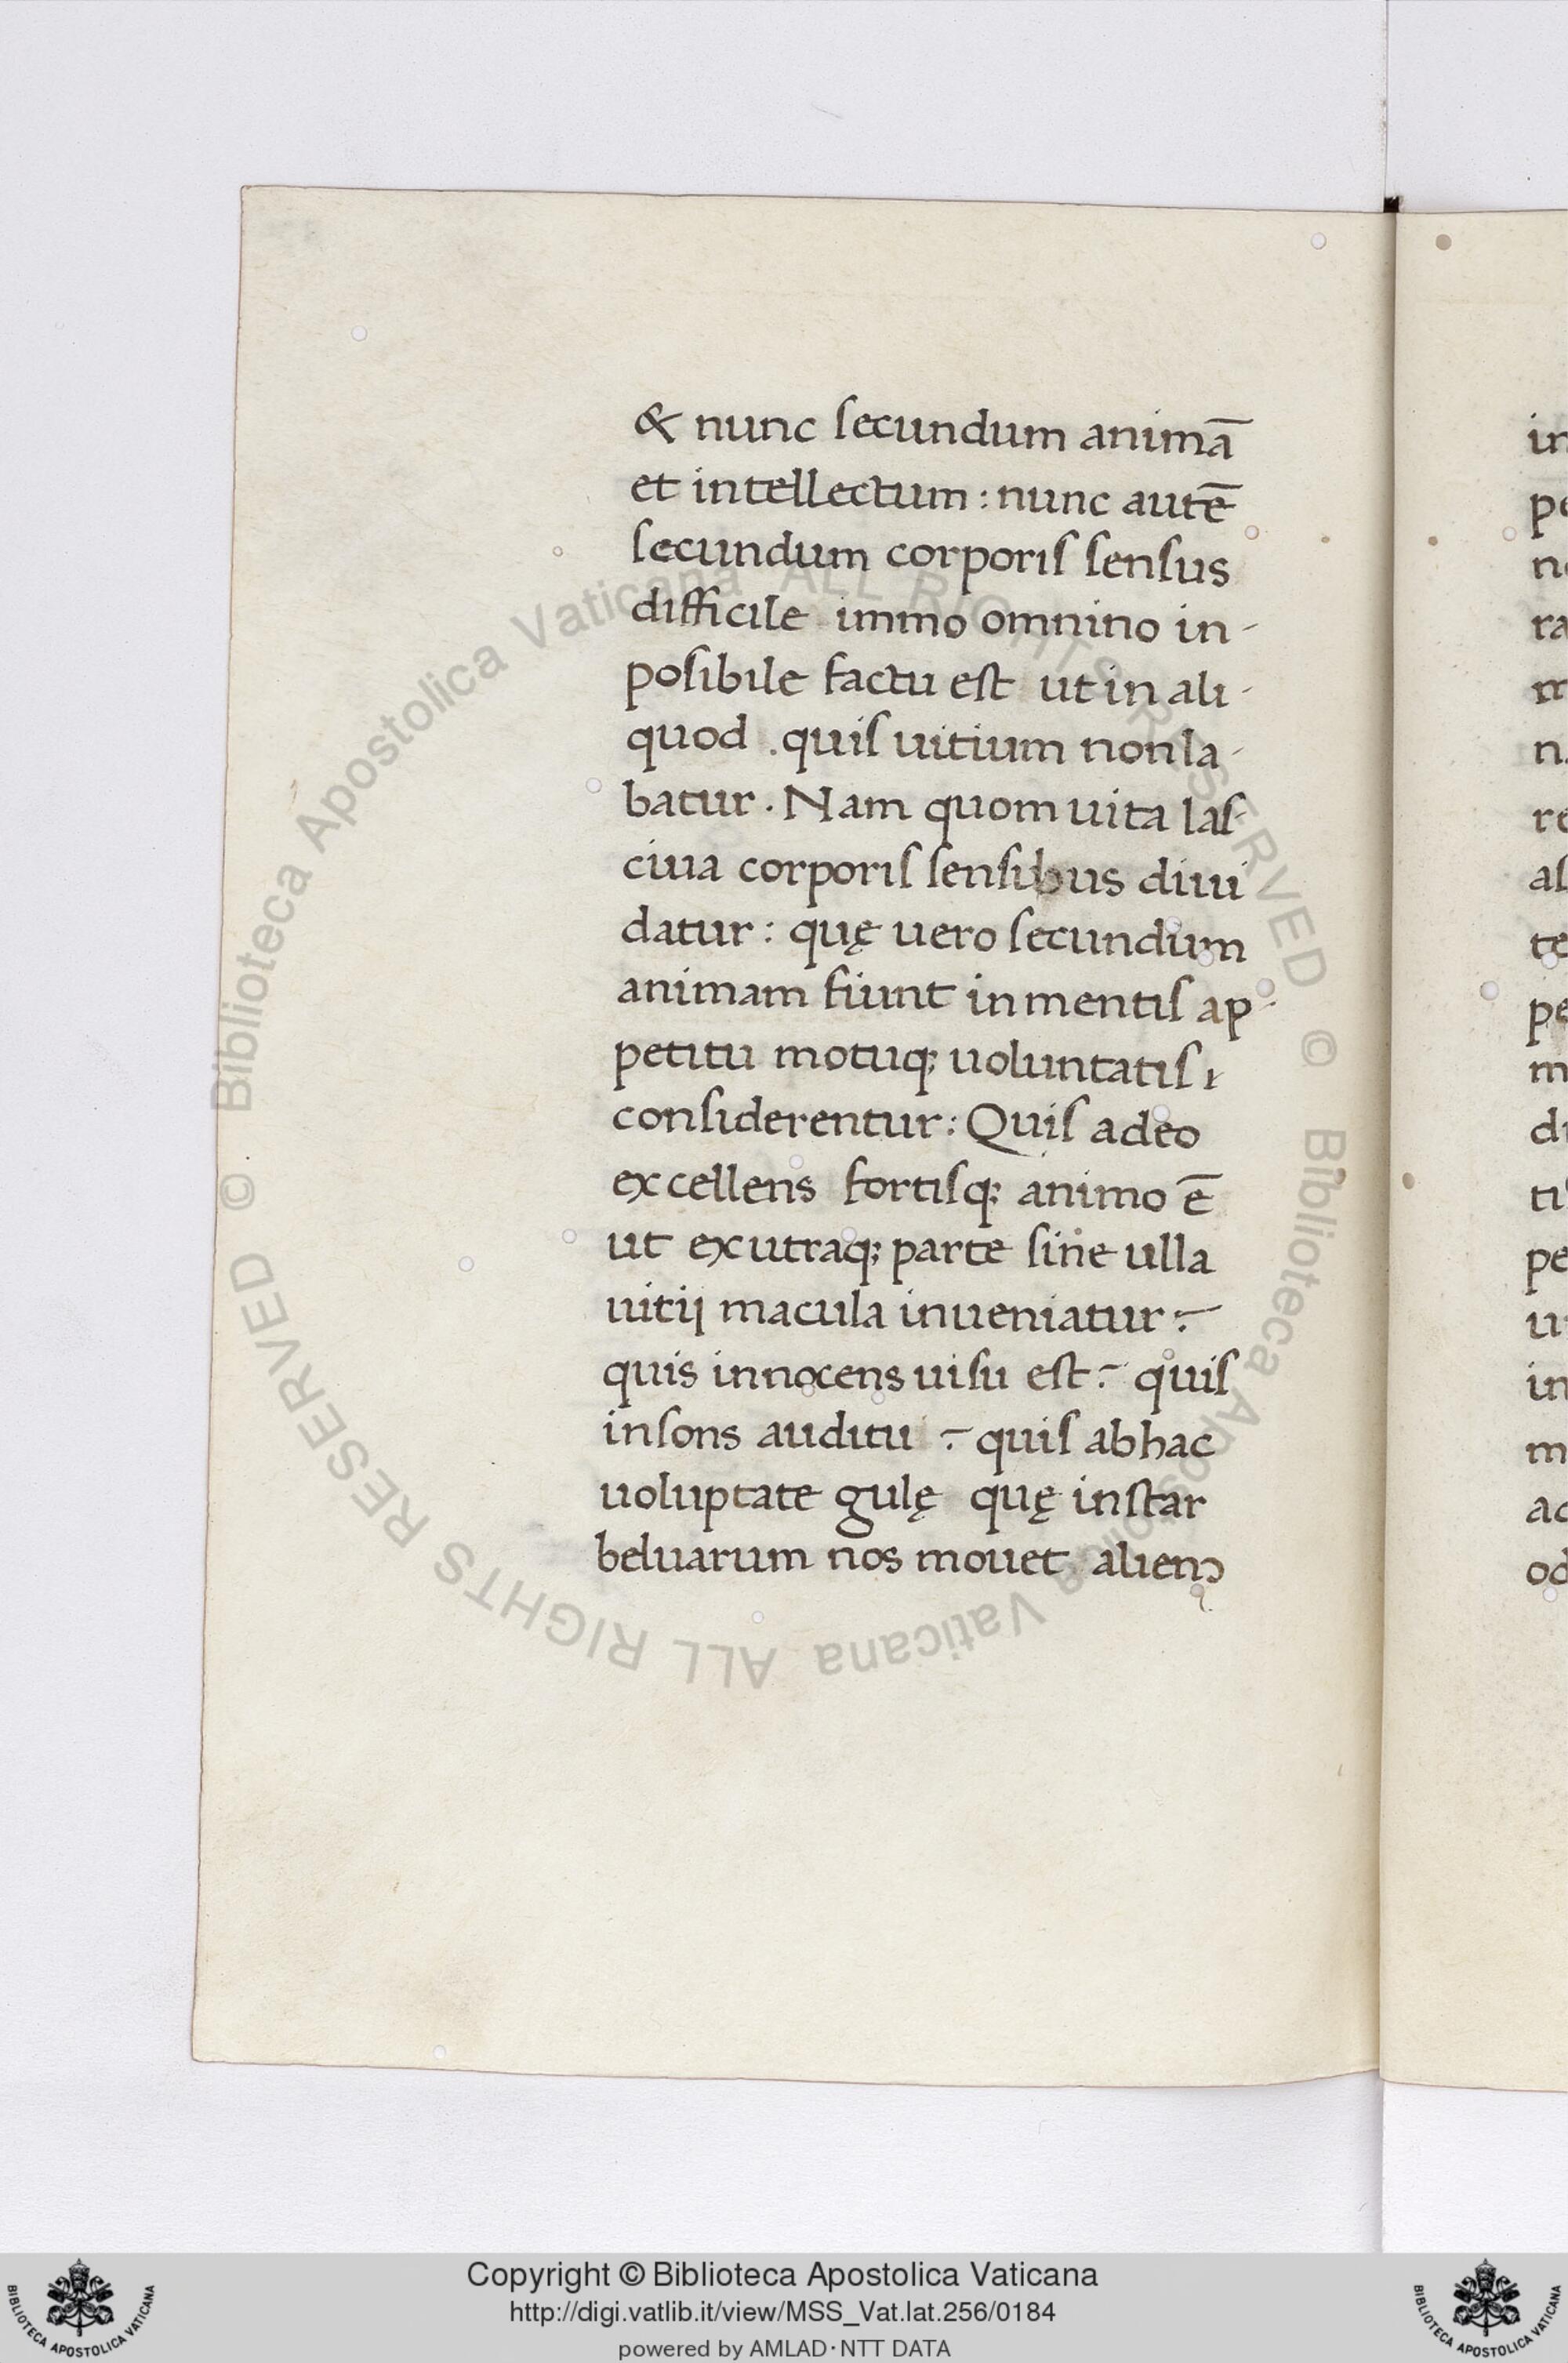 & nunc secundum animā
et intellectum : nunc autē
secundum corporis sensus
difficile immo omnino in-
posibile factu est ut in ali-
quod . quis uitium non la-
batur . Nam quom uita las-
ciua corporis sensibus diui
datur : quę uero secundum
animam fiunt in mentis ap-
petitu motuq; uoluntatis
considerentur : Quis adeo
excellens fortisq; animo ē
ut ex utraq; parte sine ulla
uitij macula inueniatur ?
quis innocens uisu est ? quis
insons auditu ? quis ab hac
uoluptate gulę quę instar
beluarum nos mouet alien
in
pe
ra
m
n
re
al
te
pe
m
di
pe
u
in
m
ac
od
© Biblioteca Apostolica Vaticana ALL RIGHTS RESERVED © Biblioteca Apostolica Vaticana ALL RIGHTS RESERVED
Copyright © Biblioteca Apostolica Vaticana
http://digi.vatlib.it/view/MSS_Vat.lat.256/0184
powered by AMLAD·NTT DATA
BIBLIOTECA APOSTOLICA VATICANA
BIBLIOTECA APOSTOLICA VATICANA